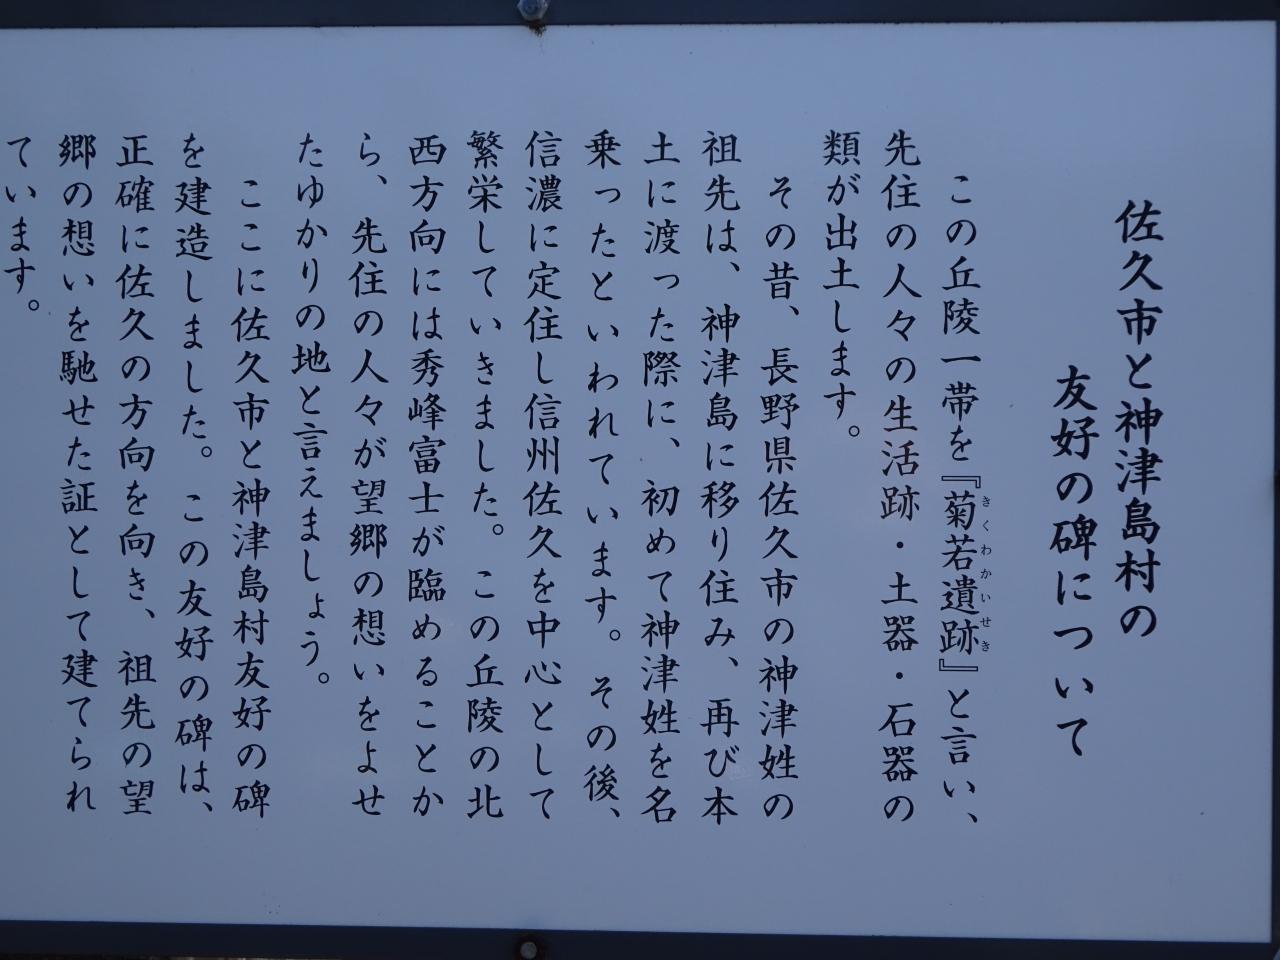 佐久市と神津島村の
友好の碑について
この丘陵一帯を『菊若遺跡』と言い、
きくわかいせき
先住の人々の生活跡・土器・石器の
類が出土します。
その昔、長野県佐久市の神津姓の
祖先は、神津島に移り住み、再び本
土に渡った際に、初めて神津姓を名
乗ったといわれています。その後、
信濃に定住し信州佐久を中心として
繁栄していきました。この丘陵の北
西方向には秀峰富士が臨めることか
ら、先住の人々が望郷の想いをよせ
たゆかりの地と言えましょう。
ここに佐久市と神津島村友好の碑
を建造しました。この友好の碑は、
正確に佐久の方向を向き、祖先の望
郷の想いを馳せた証として建てられ
ています。